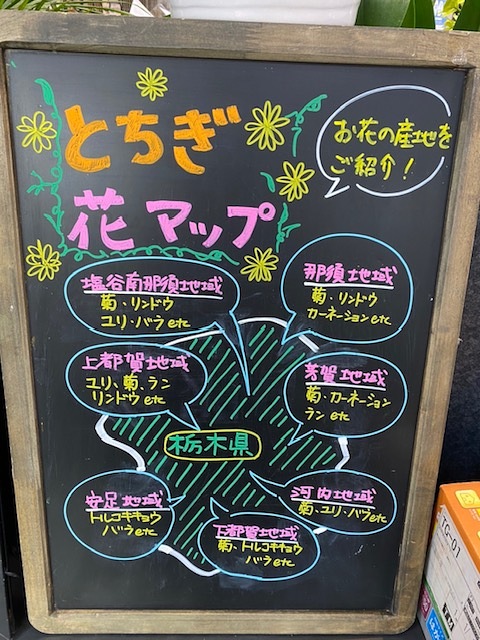 とちぎ
花マップ
お花の産地を
ご紹介!
塩谷南那須地域
菊・リンドウ
ユリ・バラetc
那須地域
菊・リンドウ
カーネーションetc
上都賀地域
ユリ、菊、ラン
リンドウetc
芳賀地域
菊・カーネーション
ランetc
栃木県
安足地域
トルコキキョウ
バラetc
下都賀地域
菊・トルコキキョウ
バラetc
河内地域
菊、ユリ、バラetc
TG-01